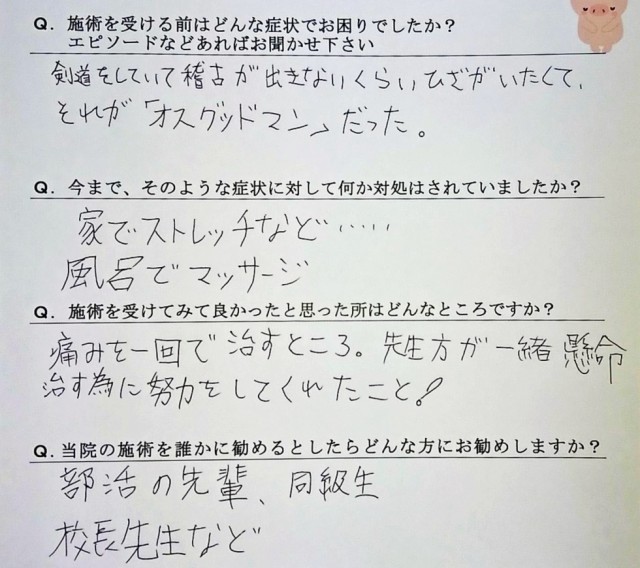 Q. 施術を受ける前はどんな症状でお困りでしたか？
エピソードなどあればお聞かせ下さい
剣道をしていて稽古が出きないくらいひざがいたくて、
それが「オスグッドマン」だった。
Q. 今まで、そのような症状に対して何か対処はされていましたか？
家でストレッチなど……
風呂でマッサージ
Q. 施術を受けてみて良かったと思った所はどんなところですか？
痛みを一回で治すところ。先生方が一緒懸命
治す為に努力をしてくれたこと！
Q. 当院の施術を誰かに勧めるとしたらどんな方にお勧めしますか？
部活の先輩、同級生
校長先生など